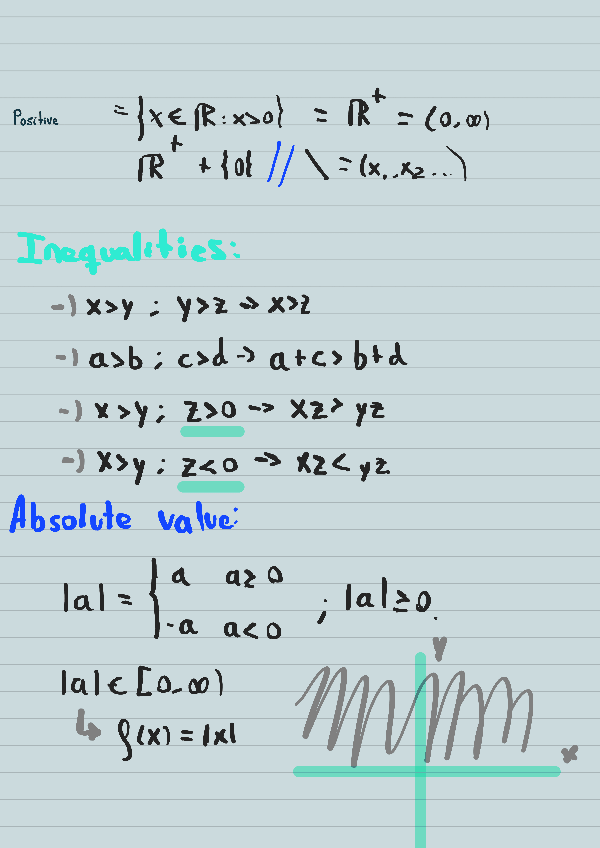 Positive = {x ∈ ℝ : x>0} = ℝ⁺ = (0, ∞)
ℝ⁺ + {0} // \ = (x, , x₂ ...)
Inequalities:
-) x>y ; y>z -> x>z
-) a>b ; c>d -> a+c > b+d
-) x>y ; z>0 -> xz > yz
-) x>y ; z<0 -> xz < yz
Absolute value:
|a| = { a a≥0 ; |a| ≥ 0.
-a a<0
|a| ∈ [0, ∞)
↳ f(x) = |x|
y
x